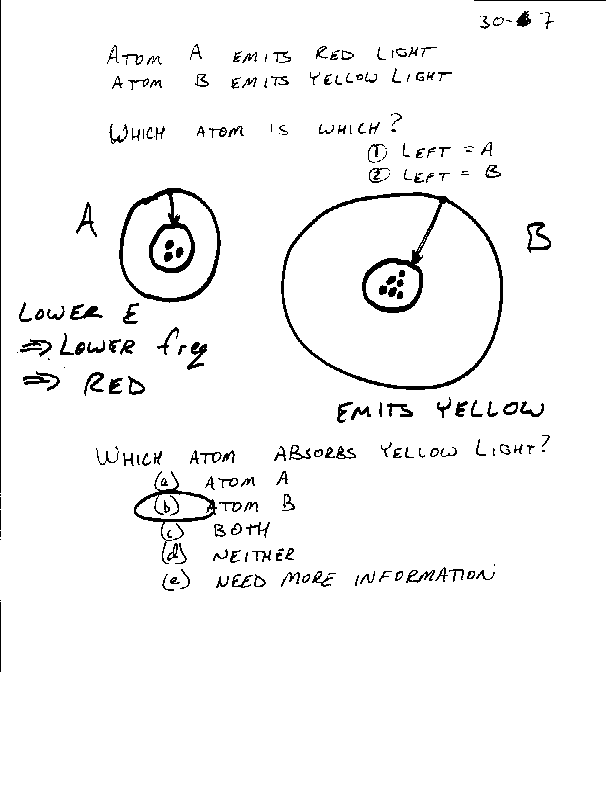 30-7
ATOM A EMITS RED LIGHT
ATOM B EMITS YELLOW LIGHT
WHICH ATOM IS WHICH?
① LEFT = A
② LEFT = B
A
B
LOWER E
⇒ LOWER freq
⇒ RED
EMITS YELLOW
WHICH ATOM ABSORBS YELLOW LIGHT?
(a) ATOM A
(b) ATOM B
(c) BOTH
(d) NEITHER
(e) NEED MORE INFORMATION